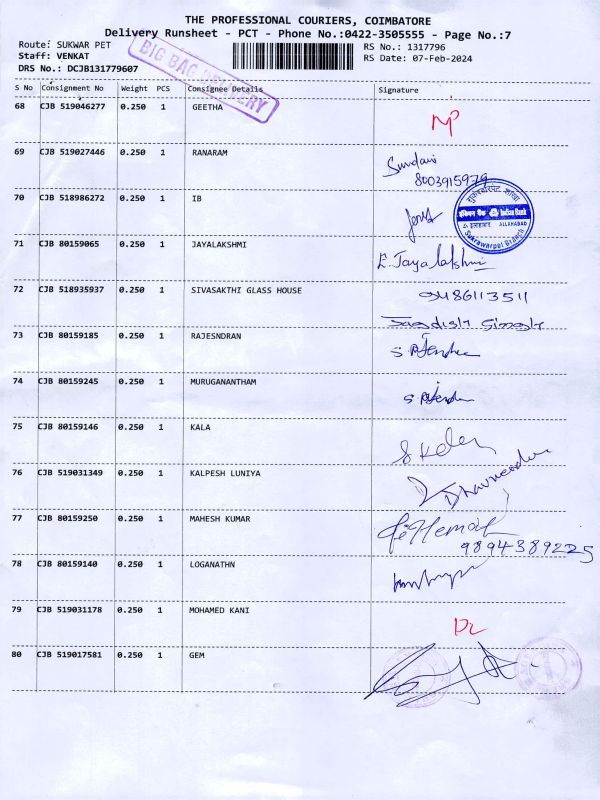 THE PROFESSIONAL COURIERS, COIMBATORE
Delivery Runsheet - PCT - Phone No.:0422-3505555 - Page No.:7
Route: SUKWAR PET
RS No.: 1317796
Staff: VENKAT
RS Date: 07-Feb-2024
DRS No.: DCJB131779607
BIG BAG DELIVERY
S No Consignment No Weight PCS Consignee Details Signature
68 CJB 519046277 0.250 1 GEETHA
69 CJB 519027446 0.250 1 RANARAM
8003915979
70 CJB 518986272 0.250 1 IB
इंडियन बैंक Indian Bank
इलाहाबाद ALLAHABAD
Sukrawarpet Branch
71 CJB 80159065 0.250 1 JAYALAKSHMI E. Jayalakshmi
72 CJB 518935937 0.250 1 SIVASAKTHI GLASS HOUSE 9486113511
Jagdish Singh
73 CJB 80159185 0.250 1 RAJESNDRAN
74 CJB 80159245 0.250 1 MURUGANANTHAM
75 CJB 80159146 0.250 1 KALA
76 CJB 519031349 0.250 1 KALPESH LUNIYA
77 CJB 80159250 0.250 1 MAHESH KUMAR
9894389225
78 CJB 80159140 0.250 1 LOGANATHN
79 CJB 519031178 0.250 1 MOHAMED KANI
80 CJB 519017581 0.250 1 GEM